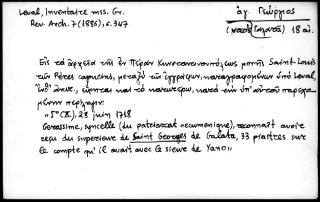 Laval, Inventaire mss. Gr.
Rev. Arch. 7 (1886), σ. 347
ἁγ. Γεώργιος
(ναός Γαλατᾶ) 18 αἰ.
Εἰς τὰ ἀρχεῖα τῆς ἐν Πέραν Κωνσταντινουπόλεως μονῆς Saint-Louis
τῶν Pères capucins, μεταξὺ τῶν ἐγγράφων, καταγραφομένων ὑπὸ Laval,
ἔνθ' ἄνωτ., εὕρηται καὶ τὸ κατωτέρω, κατὰ τὴν ὑπ' αὐτοῦ παρεχο-
μένην περίληψιν:
28 juin 1718
Gerassime, syncelle (du patriarcat œcumenique), reconnaît avoir
reçu du superieur de Saint Georges de Galata, 33 piastres sur
le compte qu'il avait avec le sieur de Yano".